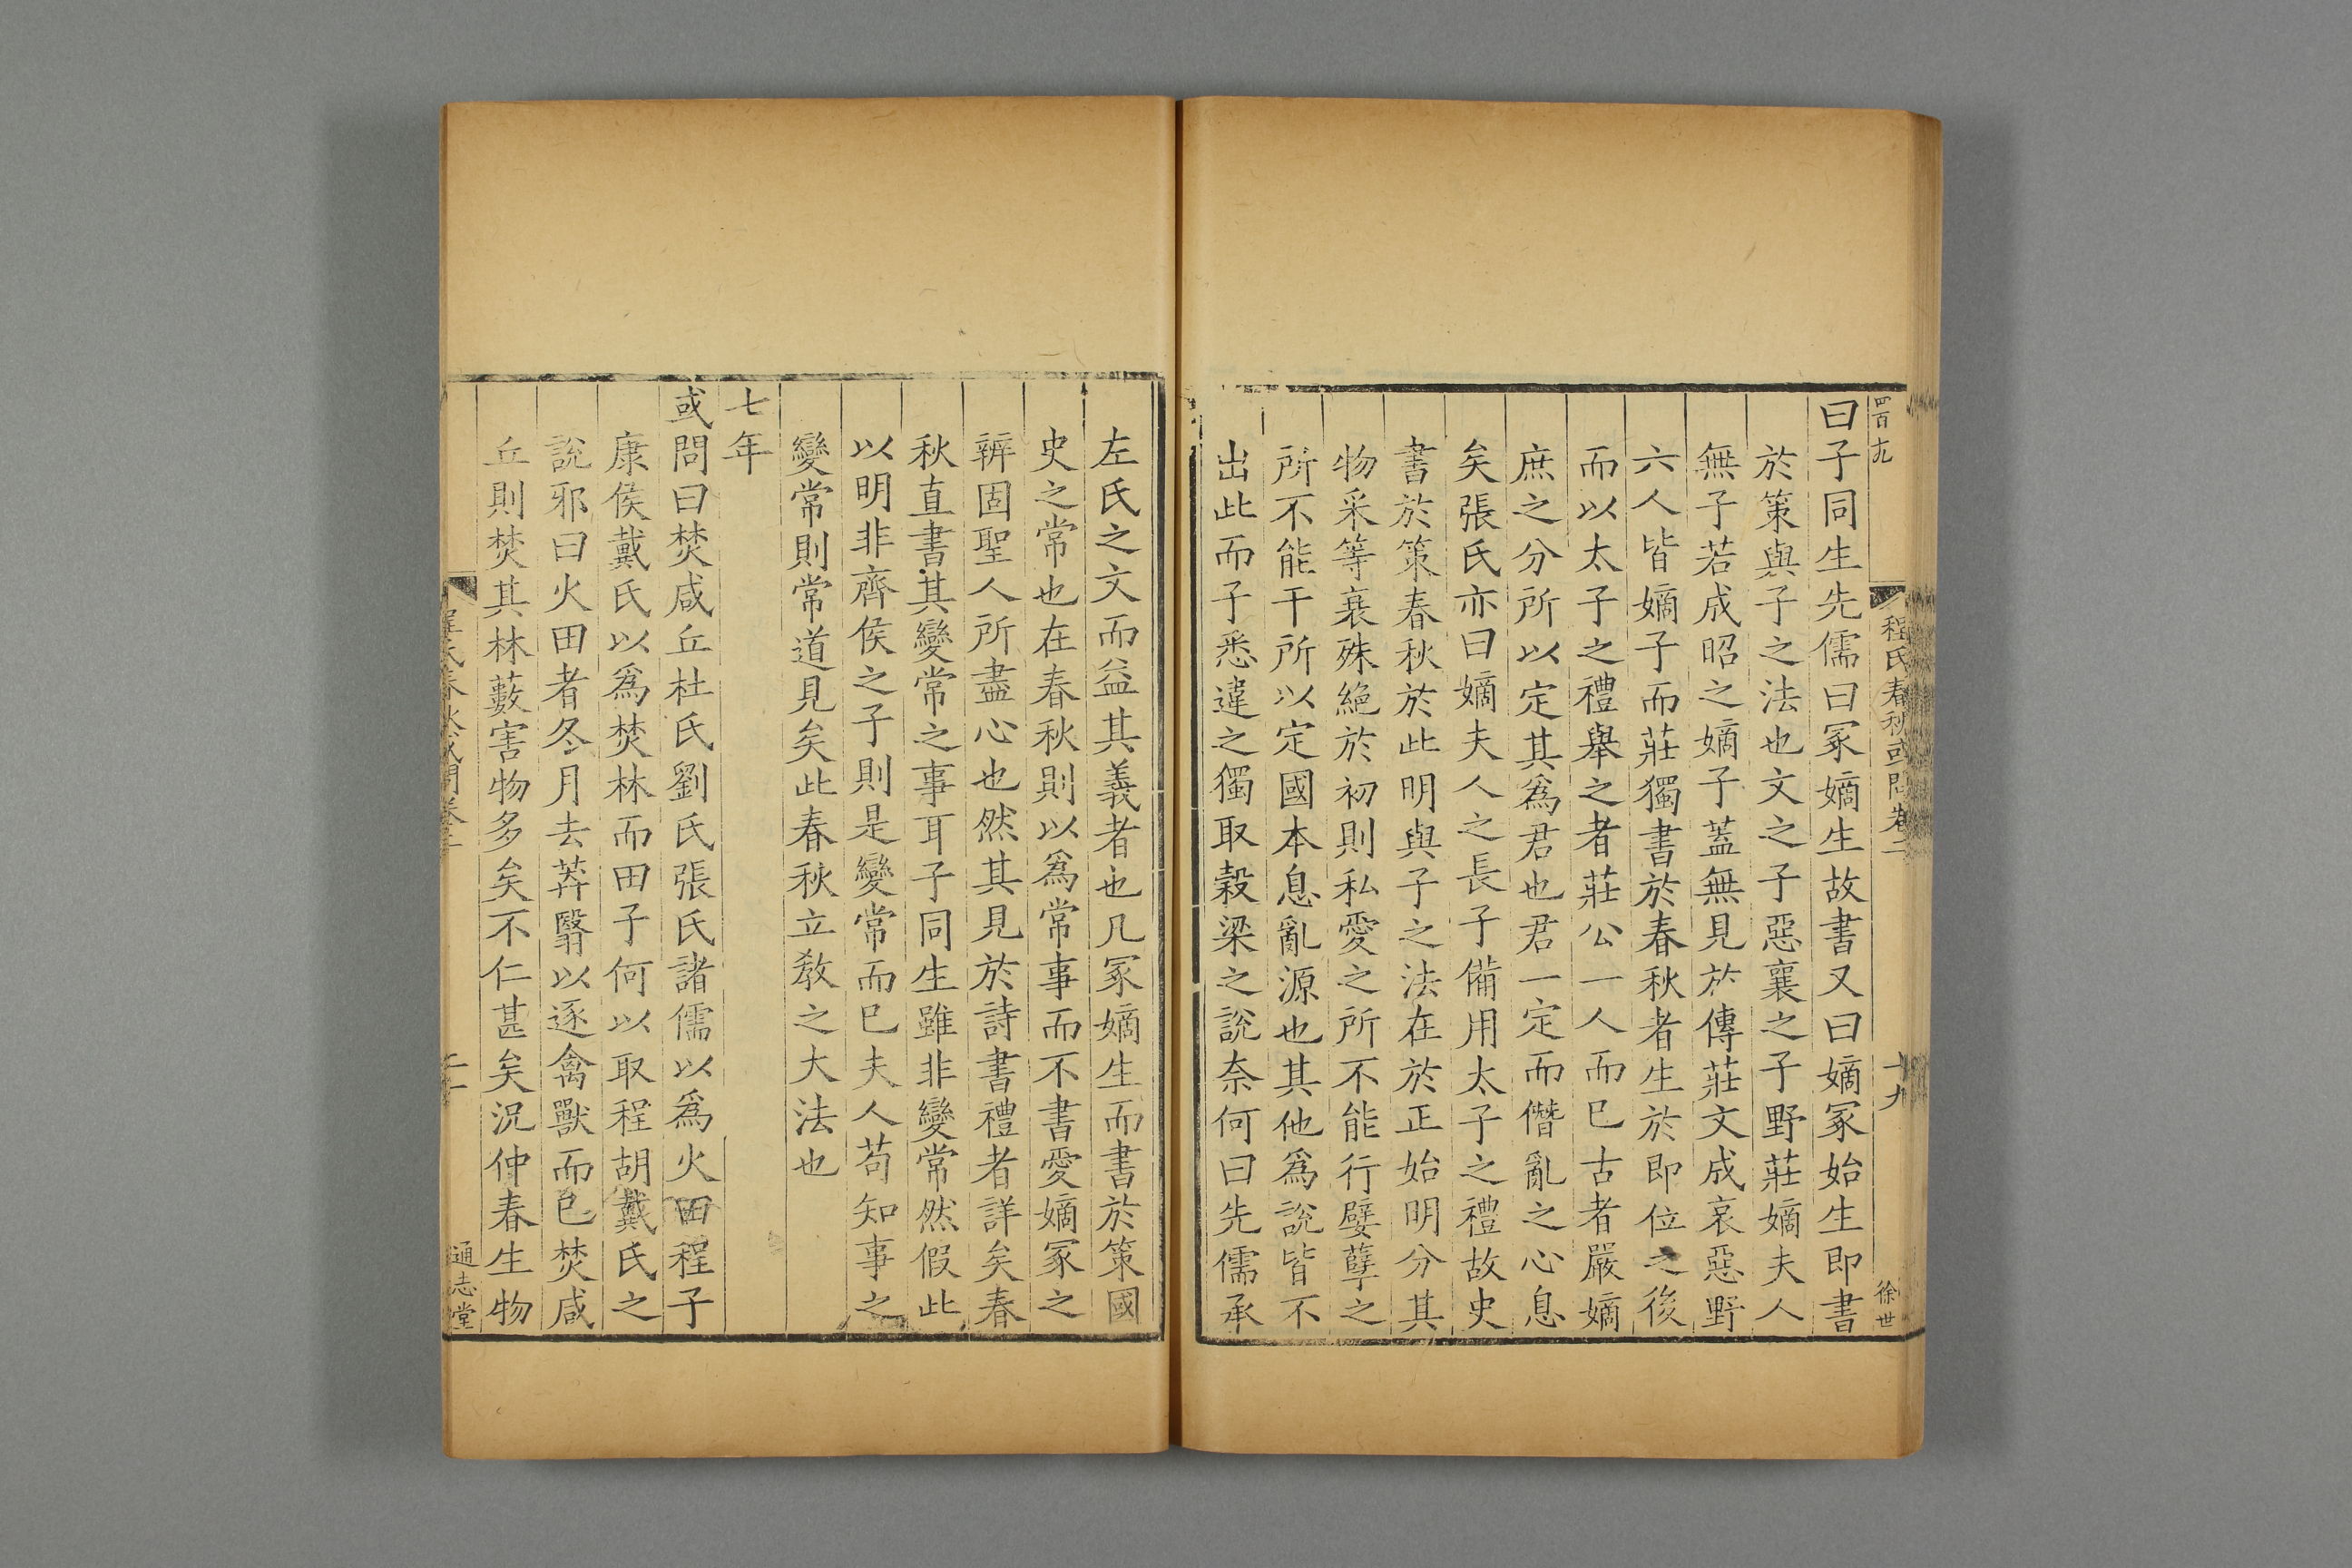 四百十九
程氏春秋或問卷二
十九
徐世
曰子同生先儒曰冢嫡生故書又曰嫡冢始生即書
於策與子之法也文之子惡襄之子野莊嫡夫人
無子若成昭之嫡子蓋無見於傳莊文成哀惡野
六人皆嫡子而莊獨書於春秋者生於即位之後
而以太子之禮舉之者莊公一人而已古者嚴嫡
庶之分所以定其爲君也君一定而僭亂之心息
矣張氏亦曰嫡夫人之長子備用太子之禮故史
書於策春秋於此明與子之法在於正始明分其
物采等衰殊絕於初則私愛之所不能行嬖孽之
所不能干所以定國本息亂源也其他爲說皆不
出此而子悉違之獨取穀梁之說奈何曰先儒承
左氏之文而益其義者也凡冢嫡生而書於策國
史之常也在春秋則以爲常事而不書愛嫡冢之
辨固聖人所盡心也然其見於詩書禮者詳矣春
秋直書其變常之事耳子同生雖非變常然假此
以明非齊侯之子則是變常而已夫人苟知事之
變常則常道見矣此春秋立教之大法也
七年
或問曰焚咸丘杜氏劉氏張氏諸儒以爲火田程子
康侯戴氏以爲焚林而田子何以取程胡戴氏之
說邪曰火田者冬月去莽翳以逐禽獸而已焚咸
丘則焚其林藪害物多矣不仁甚矣況仲春生物
程氏春秋或問卷二
通志堂